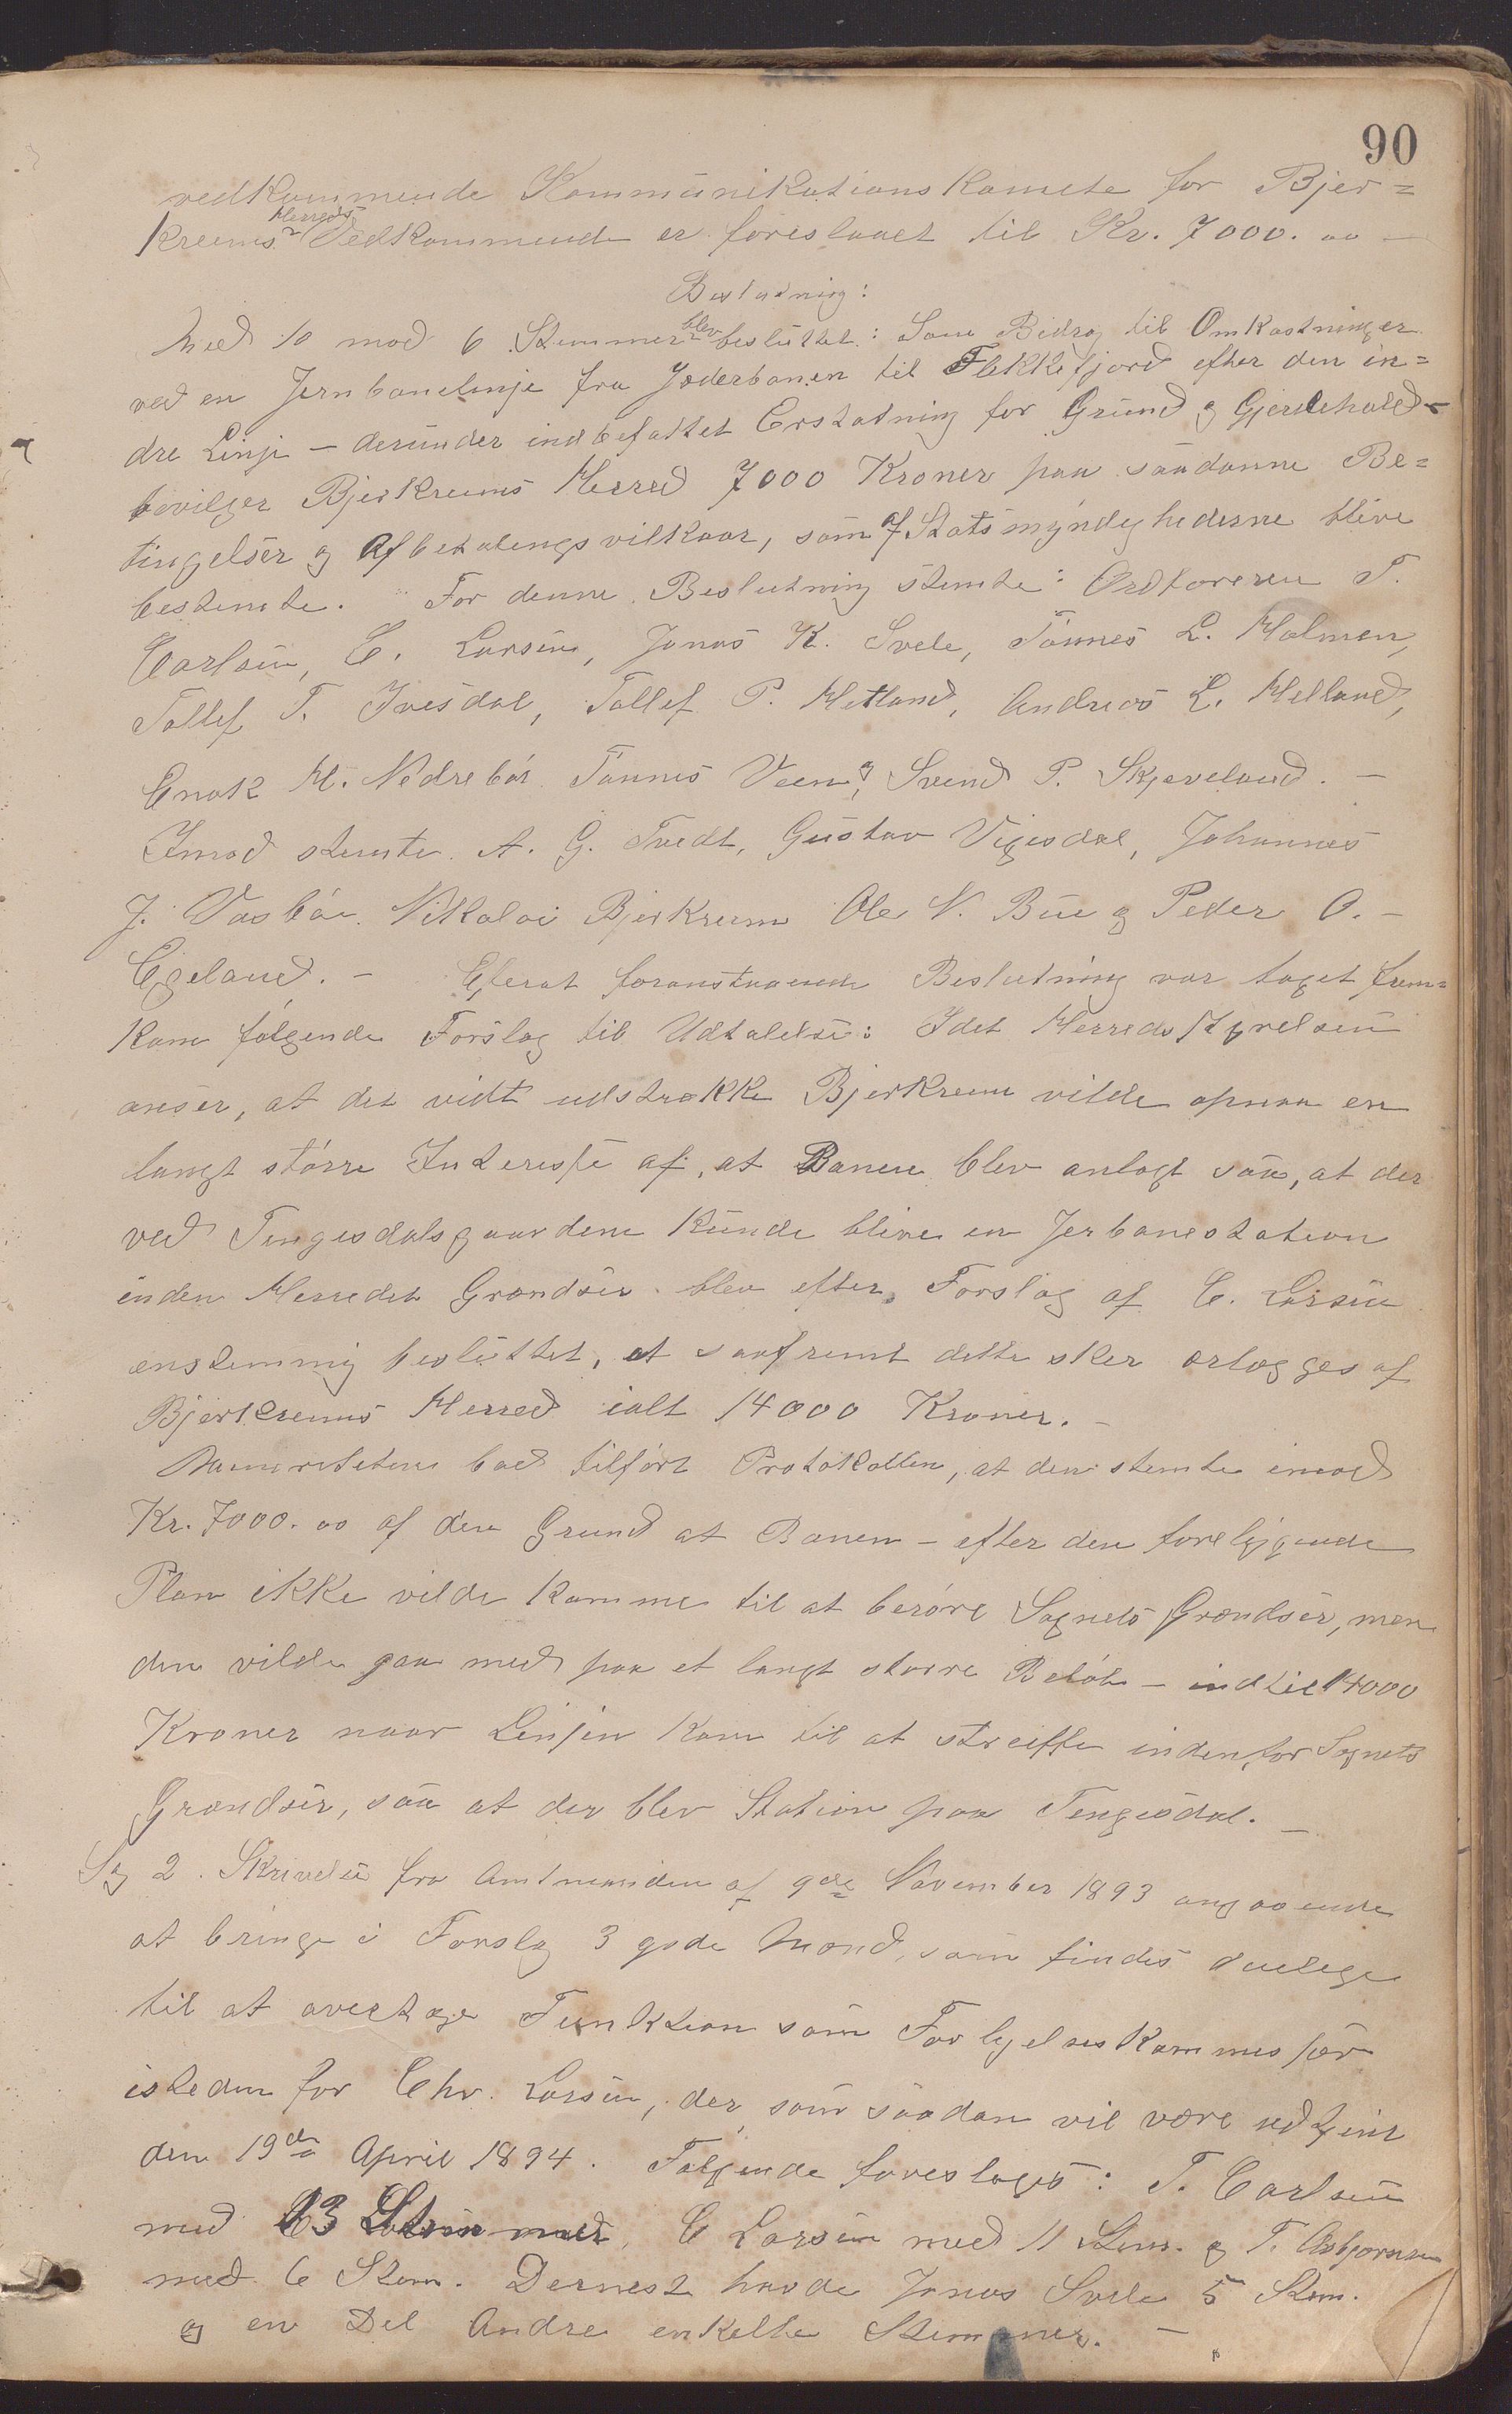 90
vedkommende Kommunikationskomite for Bjer=
kreims Herreds Vedkommende er foreslaaet til Kr. 7000.00 —
Beslutning:
Med 10 mod 6 Stemmer blev besluttet: Som Bidrag til Omkostninger
ved en Jernbanelinje fra Jæderbanen til Flekkefjord efter den in=
dre Linje – derunder indbefattet Erstatning for Grund og Gjerdehold –
bevilger Bjerkreims Herred 7000 Kroner paa saadanne Be=
tingelser og Afbetalingsvilkaar, som af Statsmyndighederne blive
bestemte. For denne Beslutning stemte: Ordføreren T.
Carlsen, C. Larsen, Jonas K. Svele, Tønnes L. Holmen,
Tollef T. Ivesdal, Tollef P. Hetland, Andreas L. Helland,
Enok H. Nedrebø, Tønnes Veen, og Svend P. Skjæveland. —
Imod stemte A. G. Tvedt, Gustav Vigesdal, Johannes
J. Vasbø, Nikolai Bjerkreim Ole N. Bue og Peder O. –
Egeland. – Efterat foranstaaende Beslutning var taget frem=
kom følgende Forslag til Udtalelse: Idet Herredsstyrelsen
anser, at det vidt udstrakke Bjerkreim vilde opnaa en
langt større Interesse af, at Banen blev anlagt saa, at der
ved Tengesdalsgaardene kunde blive en Jerbanestation
inden Herredets Grændser blev efter Forslag af C. Larsen
enstemmig besluttet, at saafremt dette sker erlægges af
Bjerkreims Herred ialt 14000 Kroner. –
Minoriteten bad tilført Protokollen, at den stemte imod
Kr. 7000.00 af den Grund at Banen – efter den foreliggende
Plan ikke vilde komme til at berøre Sognets Grændser, men
den vilde gaa med paa et langt større Beløb – indtil 14000
Kroner naar Linjen kom til at streiffe indenfor Sognets
Grændser, saa at der blev Station paa Tengesdal. –
Sag 2. Skrivelse fra Amtmanden af 9de November 1893 angaaende
at bringe i Forslag 3 gode Mænd, som findes duelige
til at overtage Funktion som Forligelseskommissær
istedenfor Chr. Larsen, der som saadan vil være udtjent
den 19de April 1894. Følgende foresloges: T. Carlsen
med 13 Stem., C Larsen med 11 Stem. og T. Asbjørnsen
med 6 Stem. Dernest havde Jonas Svele 5 Stem.
og en Del Andre enkelte Stemmer. —